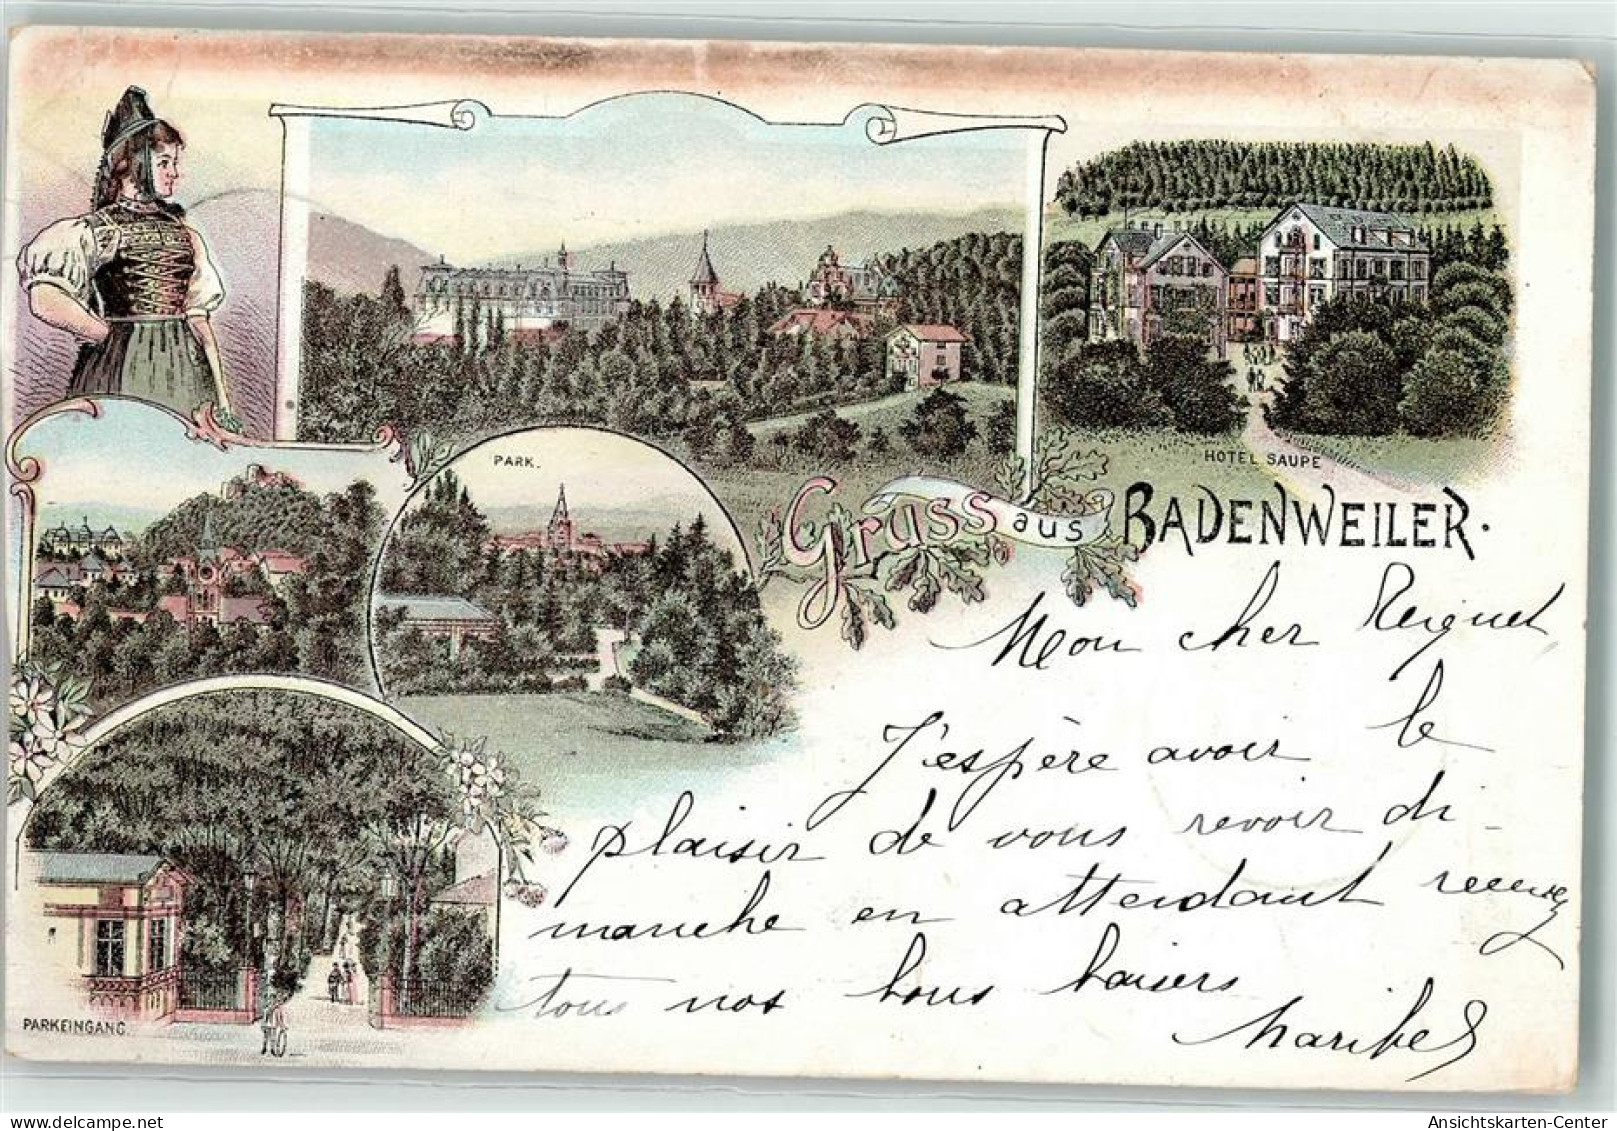 PARK.
HOTEL SAUPE
Gruss aus BADENWEILER.
Mon cher
J'espère avoir le
plaisir de vous revoir di-
manche en attendant recevez
tous nos bons baisers
PARKEINGANG.
Ansichtskarten-Center